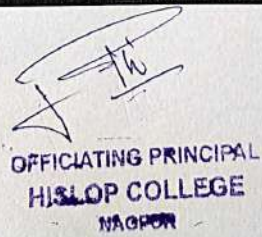 OFFICIATING PRINCIPAL
HISLOP COLLEGE
NAGPUR